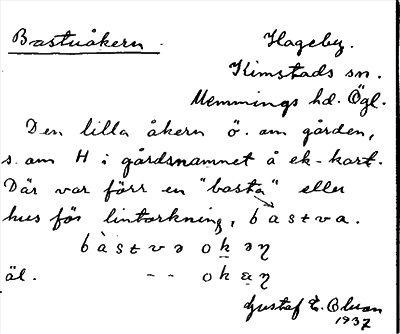 Bastuåkern. Hageby.
Kimstads sn.
Memmings hd. Ögl.
Den lilla åkern ö. om gården,
s. om H i gårdsnamnet å ek-kart.
Där var förr en "basta" eller
hus för lintorkning, bastva.
bàstvə okəη
äl. - - okaη
Gustaf E. Olsson
1937